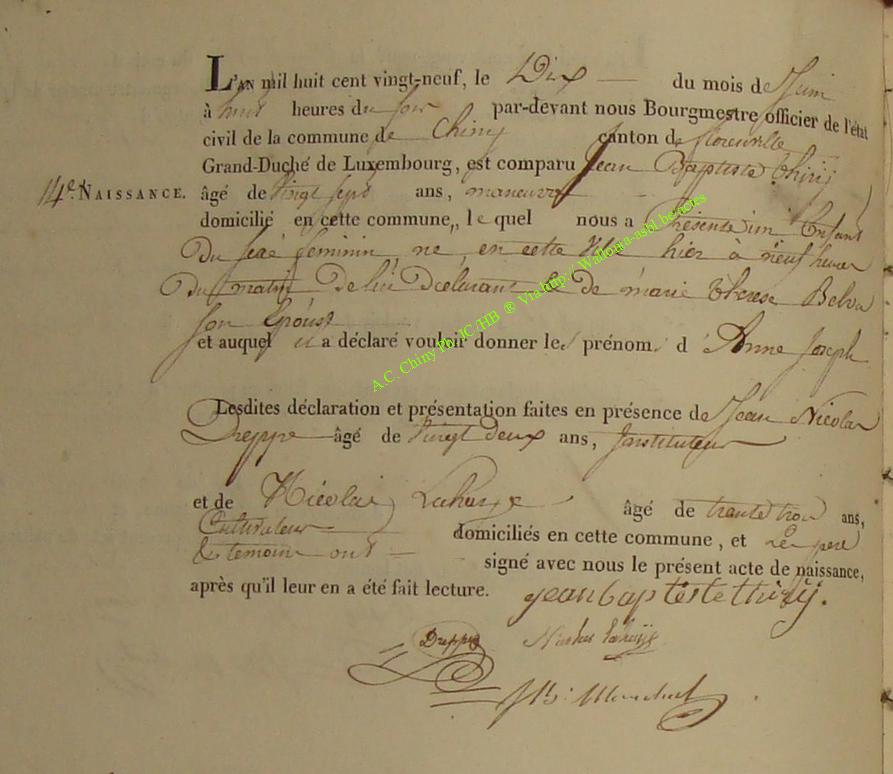 L'AN mil huit cent vingt-neuf, le Dix du mois de Juin
à huit heures du soir par-devant nous Bourgmestre officier de l'état
civil de la commune de Chiny canton de florenville
Grand-Duché de Luxembourg, est comparu Jean Baptiste thirij
14e. NAISSANCE. âgé de vingt sept ans, maneuvre
domicilié en cette commune, le quel nous a Présenté un Enfant
Du sexe feminin ne en cette Ville hier à neuf heures
Du matin De lui Declarant & de marie therese
son Epouse
et auquel il a déclaré vouloir donner les prénoms d' Anne Joseph
Lesdites déclaration et présentation faites en présence de Jean Nicolas
Dreppe âgé de vingt deux ans, Instituteur
et de Nicolas âgé de trente trois ans,
Cultivateur domiciliés en cette commune, et Le pere
& temoins ont signé avec nous le présent acte de naissance,
après qu'il leur en a été fait lecture. jean baptiste thirij.
Dreppe
A.C. Chiny Ph. JC /HB ® Via http:// Wallonia-asbl.be/actes